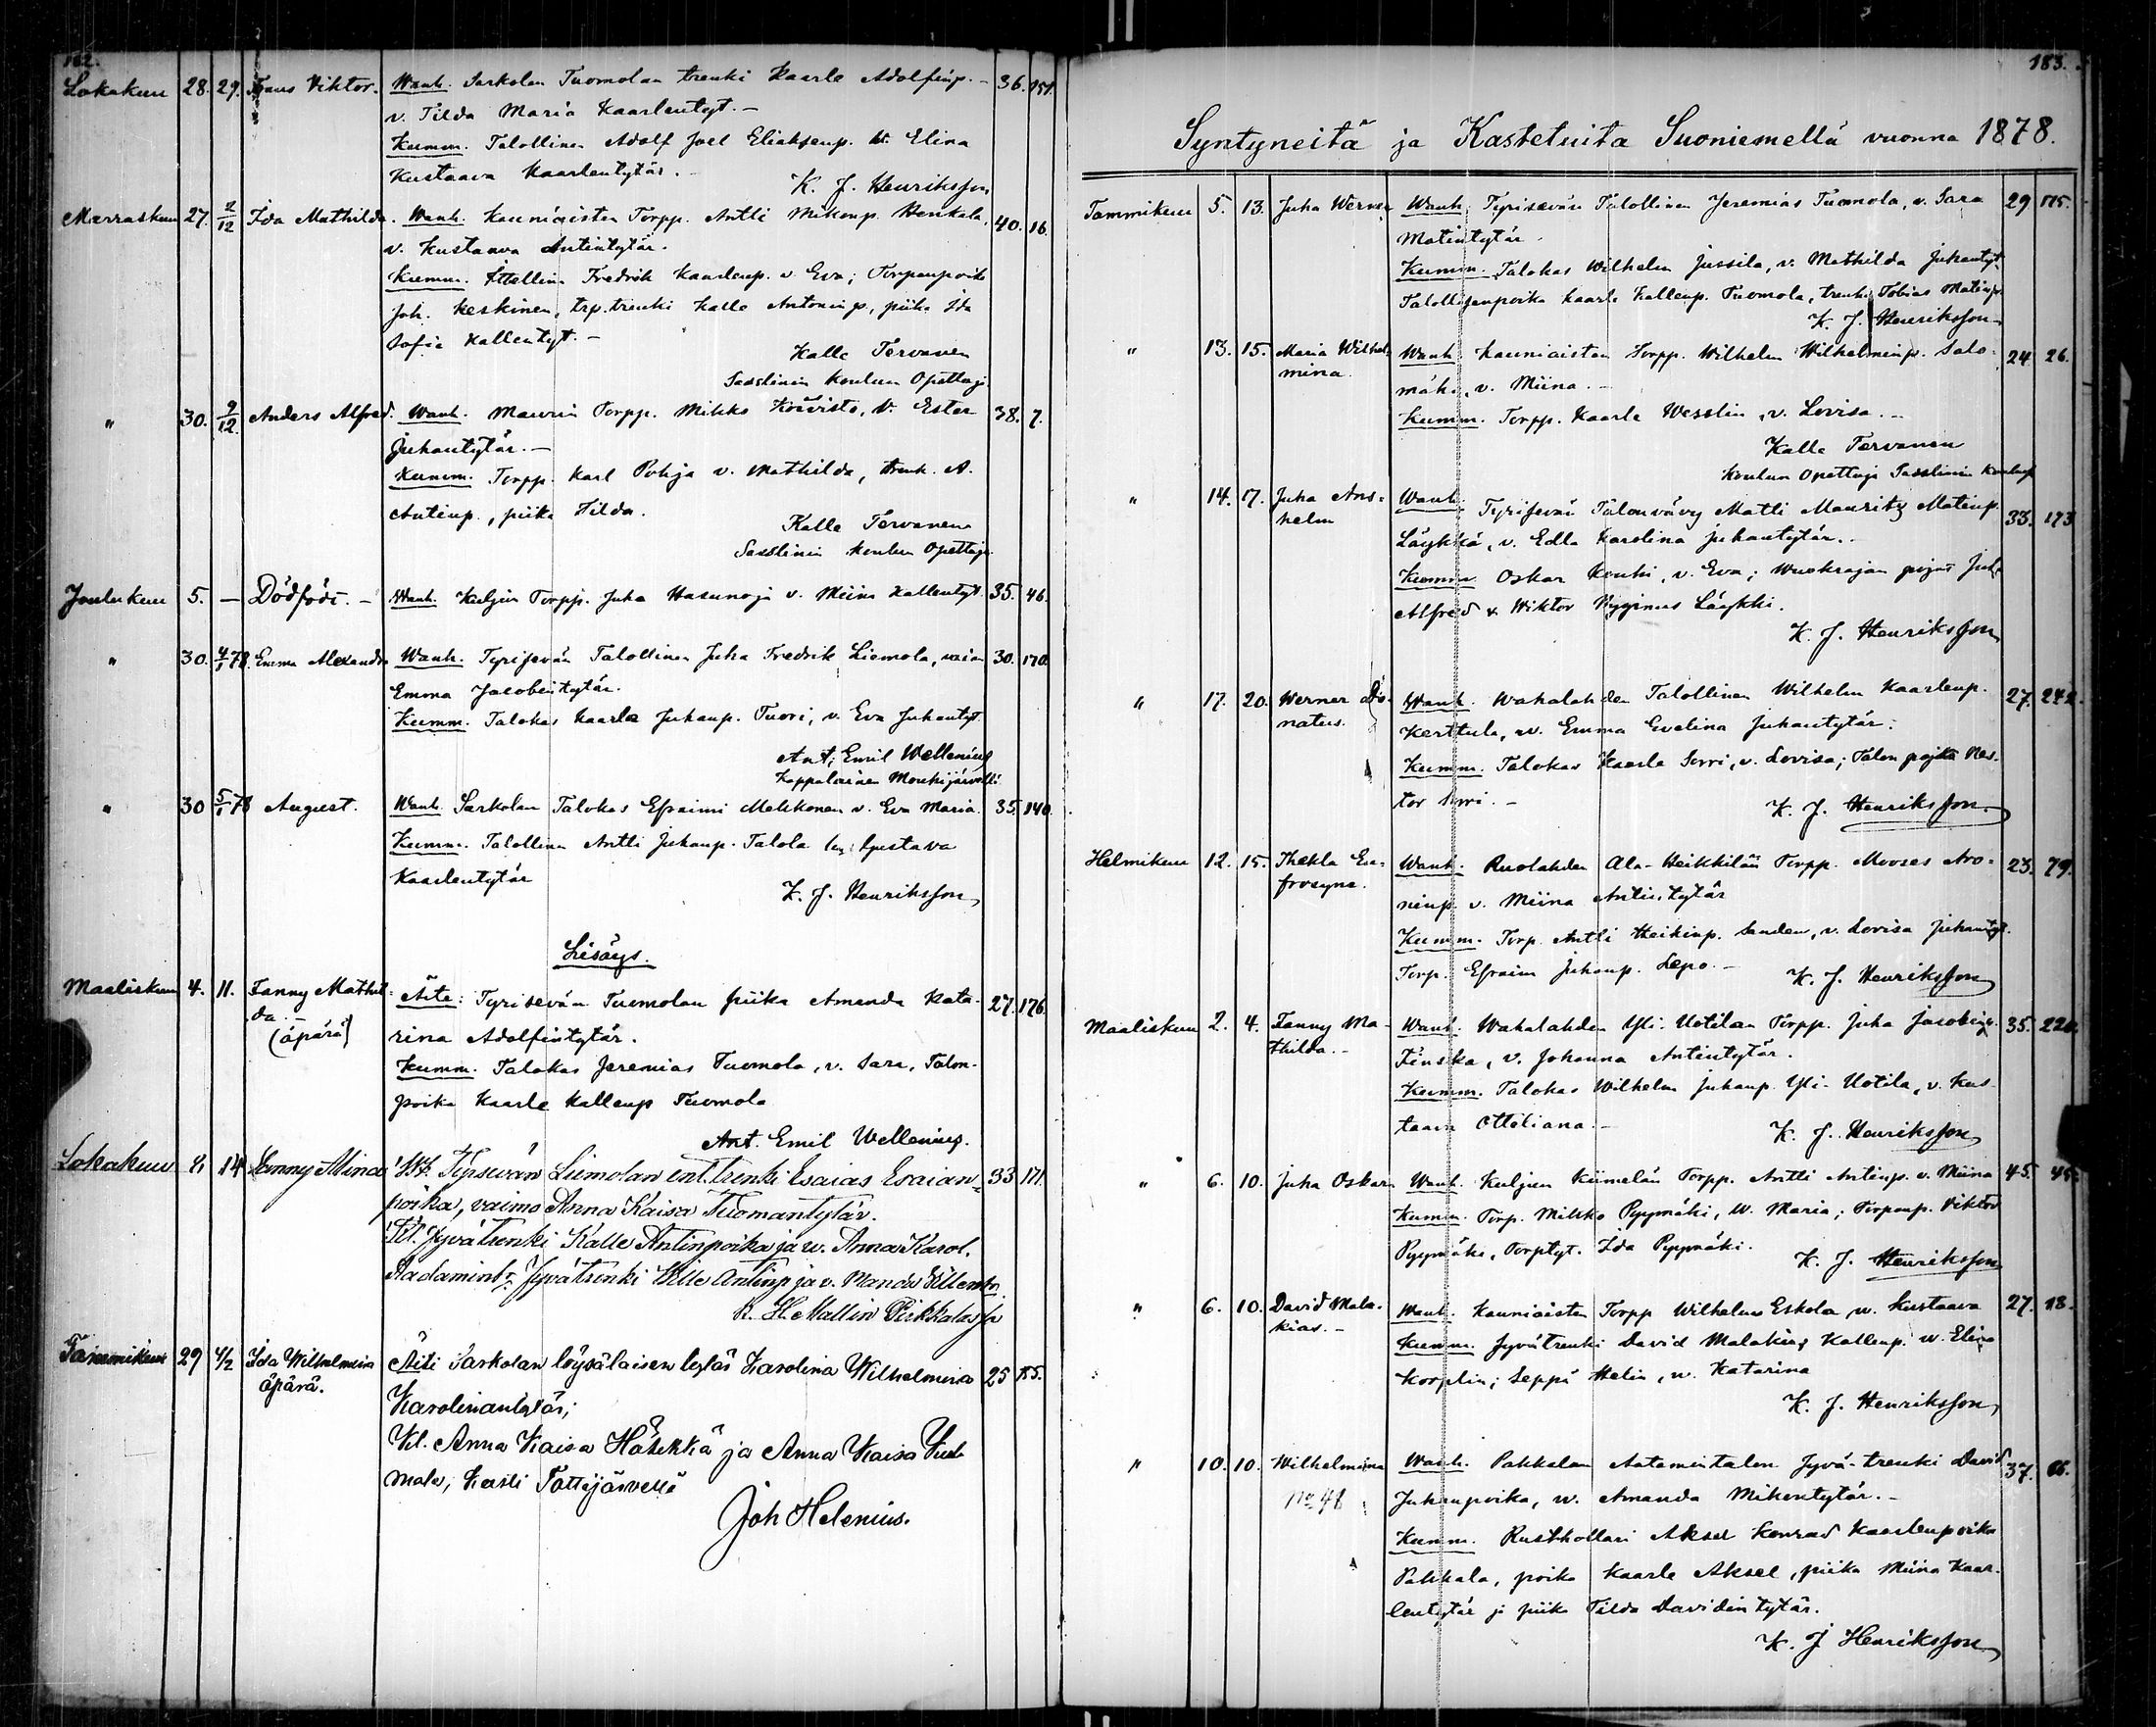 182.
Lokakuu 28. 29. Frans Viktor. Wanh. Sarkolan Tuomolan trenki Kaarle Adolfinp. 36. 151.
v. Tilda Maria Kaarlentyt.
Kumm. Talollinen Adolf Joel Eliaksenp. w. Elina
Kustaava Kaarlentytär.
K. J. Henriksson
Marraskuu 27. 2/12 Ida Mathilda. Wanh. Kauniaisten Torpp. Antti Mikonp. Henkala, 40. 16.
v. Kustaava Antintytär.
Kumm. Itellinen Fredrik Kaarlenp. v. Eva; Torpanpoika
Joh. Keskinen, trp. trenki Kalle Antoninp., piika Ida
Sofia Kallentyt.
Kalle Tervanen
Sasslinin koulun Opettaja
" 30. 9/12. Anders Alfred. Wanh. Maurin Torpp. Mikko Koivisto, v. Ester 38. 7.
Juhantytär.
Kumm. Torpp. Karl Pohja v. Mathilda, trenk. A.
Antinp., piika Hilda.
Kalle Tervanen
Sasslinin koulun Opettaja.
Joulukuu 5. — Dödfödt. — Wanh. Kuljun Torpp. Juha Hasunoja v. Miina Kallentyt. 35. 46.
" 30. 4/1 78. Emma Alexandra Wanh. Tyrisevän Talollinen Juha Fredrik Liemola, vaimo 30. 170.
Emma Jacobintytär.
Kumm. Talokas Kaarle Juhanp. Tuori, v. Eva Juhantyt.
Ant. Emil Wellenius
Kappalainen Mouhijärvellä
" 30 5/1 78 August. Wanh. Sarkolan Talokas Efraimi Malkkonen v. Eva Maria. 35. 140.
Kumm. Talollinen Antti Juhanp. Talola Gustava
Kaarlentytär
K. J. Henriksson
Lisäys.
Maaliskuu 4. 11. Fanny Mathil- Äite: Tyrisevän Tuomolan piika Amanda Kata- 27. 176.
da. (äpärä) rina Adolfintytär.
Kumm. Talokas Jeremias Tuomola, v. Sara, Talon-
poika Kaarle Kallenp Tuomola
Ant. Emil Wellenius.
Lokakuu 8 14 Fanny Miina Wh. Tyrsevän Liemolan ent. trenki Esaias Esaian= 33 171.
poika, vaimo Anna Kaisa Tuomantytär.
Kl. Jyvätrenki Kalle Antinpoika ja w. Anna Karol.
Aadamintr. Jyvätrenki Wille Antinp ja v. Manda Willentr.
K. H. Mallin Pirkkalassa
Tammikuu 29 4/2 Ida Wilhelmina Äiti Sarkolan löysäläisen leski Karolina Wilhelmina 25 155.
äpärä. Karolinantytär;
Kl. Anna Kaisa Hähkkä ja Anna Kaisa
mala, kasti Tottijärvellä
Joh Helenius.
183.
Syntyneitä ja Kastetuita Suoniemellä vuonna 1878.
Tammikuu 5. 13. Juha Werner Wanh. Tyrisevän Talollinen Jeremias Tuomola, v. Sara 29 175.
Matintytär.
Kumm. Talokas Wilhelm Jussila, v. Mathilda Juhantyt.
Talollisenpoika Kaarle Kallenp. Tuomola, trenki Tobias Matinp.
K. J. Henriksson
" 13. 15. Maria Wilhel- Wanh. Kauniaisten Torpp. Wilhelm Wilhelminp. Salo- 24 26.
mina. mäki, v. Miina.
Kumm. Torpp. Kaarle Wesslin, v. Lovisa.
Kalle Tervanen
koulun Opettaja Sasslinin koulusta
" 14. 17. Juha Ans- Wanh. Tyrisevän Talonvävy Matti Mauritz Matinp. 33. 173
helm Läykkä, v. Edla Karolina Juhantytär.
Kumm. Oskar Kouhi, v. Eva; Wuokraajan pojat Juha
Alfred & Wiktor Hyginus Läykki.
K. J. Henriksson
" 17. 20. Werner Do- Wanh. Wahalahden Talollinen Wilhelm Kaarlenp. 27. 242.
natus. Kerttula, w. Emma Evelina Juhantytär.
Kumm. Talokas Kaarle Sorri, v. Lovisa; Talon pojka Nes-
tor Sorri.
K. J. Henriksson.
Helmikuu 12. 15. Thekla Eu- Wanh. Ruolahden Ala-Heikkilän Torpp. Mooses Aro- 23. 79.
frosyne. ninp. v. Miina Antintytär
Kumm. Torp. Antti Heikinp. Sanden, v. Lovisa Juhantyt.
Torp. Efraim Juhanp. Lepo.
K. J. Henriksson
Maaliskuu 2. 4. Fanny Ma- Wanh. Wahalahden Yli-Uotilan Torpp. Juha Jacobinp. 35. 220.
thilda. Finska, v. Johanna Antintytär.
Kumm. Talokas Wilhelm Juhanp. Yli-Uotila, v. Kus-
taava Ottiliana.
K. J. Henriksson
" 6. 10. Juha Oskar Wanh. Kuljun Kiimelän Torpp. Antti Antinp. v. Miina 45. 45.
Kumm. Torp. Mikko Pyymäki, w. Maria; Torpanp. Viktor
Pyymäki, Torptyt. Ida Pyymäki.
K. J. Henriksson
" 6. 10. David Mala- Wanh. Kauniaisten Torpp Wilhelm Eskola w. Kustaava 27. 18.
kias. Kumm. Jyvätrenki David Malakias Kallenp. w. Elina
Korplin; Seppä Helin, w. Katarina
K. J. Henriksson
" 10. 10. Wilhelmina Wanh. Pakkalan Aatamintalon Jyvä-trenki David 37. 66.
No 48 Juhanpoika, w. Amanda Mikontytär.
Kumm. Rusthollari Aksel Konrad Kaarlenpoika
Pakkala, poika Kaarle Aksel, piika Miina Kaar-
lentytär ja piika Tilda Davidintytär.
K. J Henriksson